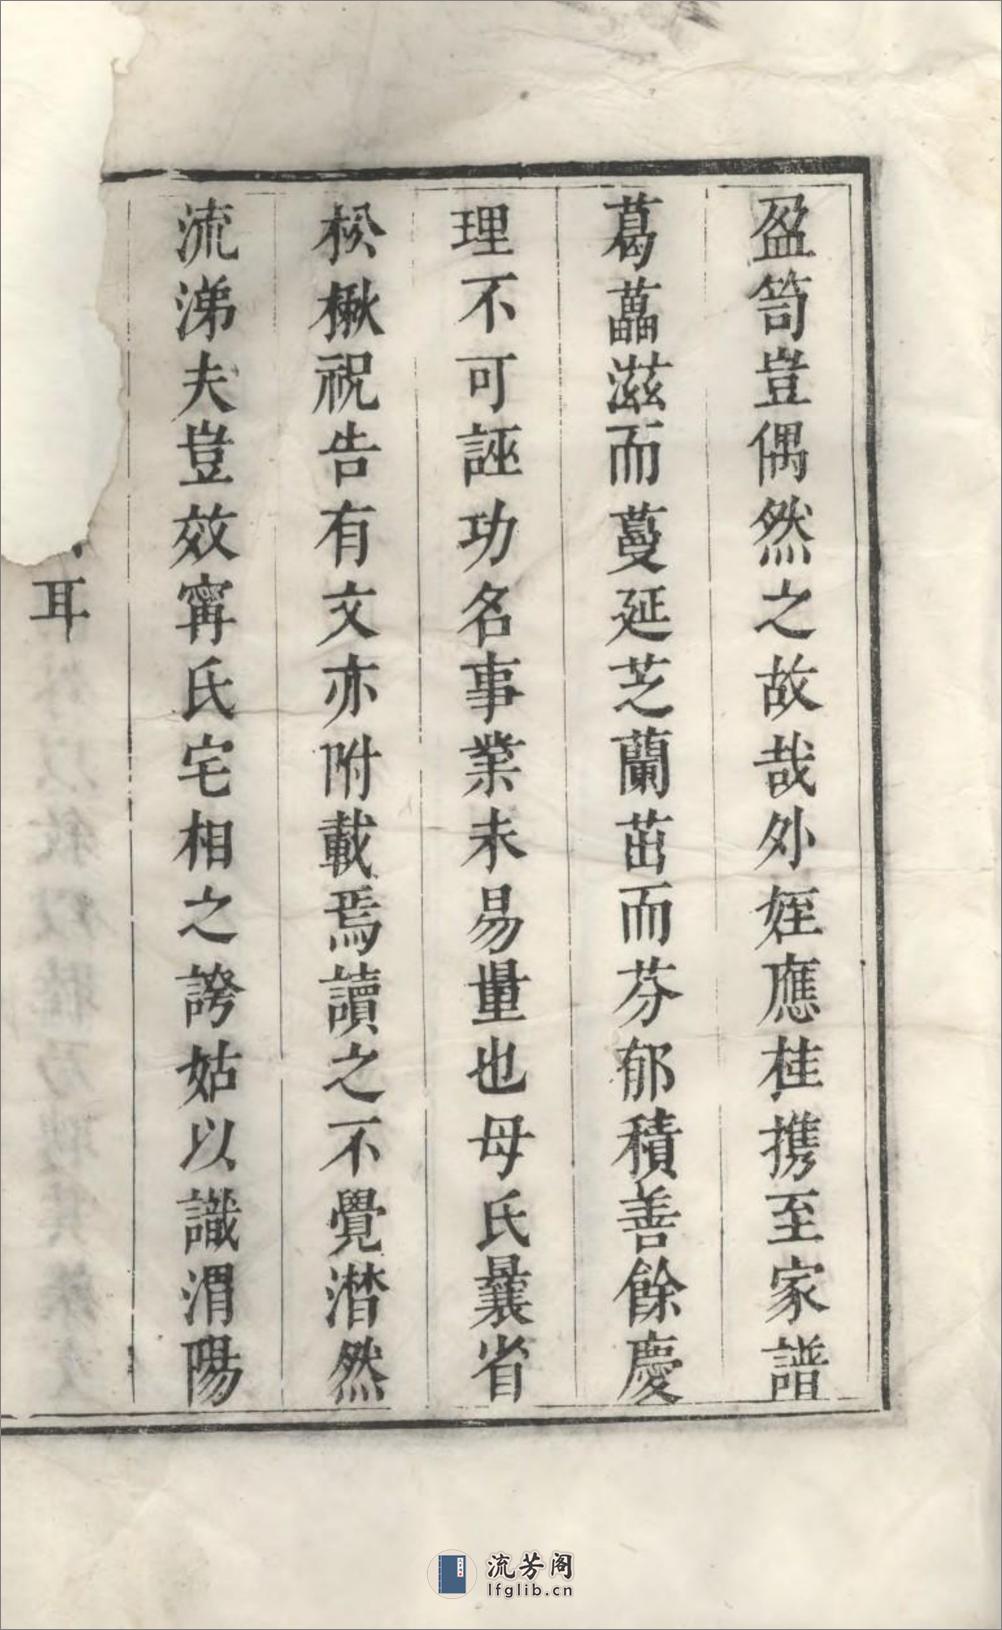 盈笥豈偶然之故哉外姪應桂携至家譜
葛藟滋而蔓延芝蘭茁而芬郁積善餘慶
理不可誣功名事業未易量也母氏曩省
松楸祝告有文亦附載焉讀之不覺潸然
流涕夫豈效甯氏宅相之誇姑以識渭陽
耳
流芳阁
lfglib.cn